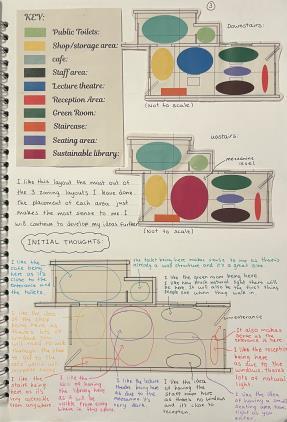 3
KEY:
Public Toilets:
Shop/storage area:
cafe:
Staff area:
Lecture theatre:
Reception Area:
Green Room:
Staircase:
Seating area:
Sustainable library:
Downstairs:
(Not to scale)
upstairs:
mezzanine
level
(Not to scale)
I like this layout the most out of
the 3 zoning layouts I have done.
The placement of each area just
makes the most sense to me. I
will continue to develop my ideas further.
INITIAL THOUGHTS:
I like the
cafe being
here as it's
close to the
entrance and
the toilets.
the toilet being here makes sense to me as there's
already a wall structure and it's a great area
I like the green room being here
I like how much natural light there will
be here. It will also be the first thing
people see when they walk in
entrance
I like the idea
of the shop
being here as
there's lots of
windows
It also makes
sense as the
entrance is here
I like the reception
being here
as due to the
windows there's
lots of natural
light
I like the
being
here as it's
very accessible
from anywhere
I like the
idea of having
the library here
as it will be
visible from every
where in the
I like the lecture
theatre being here
as due to the
mezzanine it's
very dark.
I like the
idea of having the
staff room here
as there's a window
and it's close to
reception.
I like the idea
of having a small
seating area here
light as you